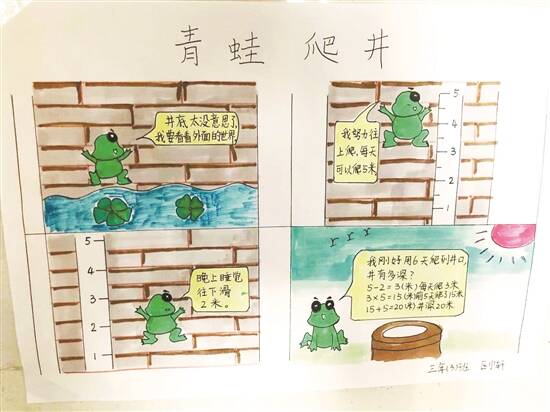 青蛙爬井
井底太没意思了,
我要看看外面的世界
我努力往
上爬,每天
可以爬5米
5
4
3
2
1
5
4
3
2
1
晚上睡觉
往下滑
2米。
我刚好用6天爬到井口,
井有多深?
5-2=3(米)每天爬3米
3×5=15(米)前5天爬了15米
15+5=20(米)井深20米
三年(3)班